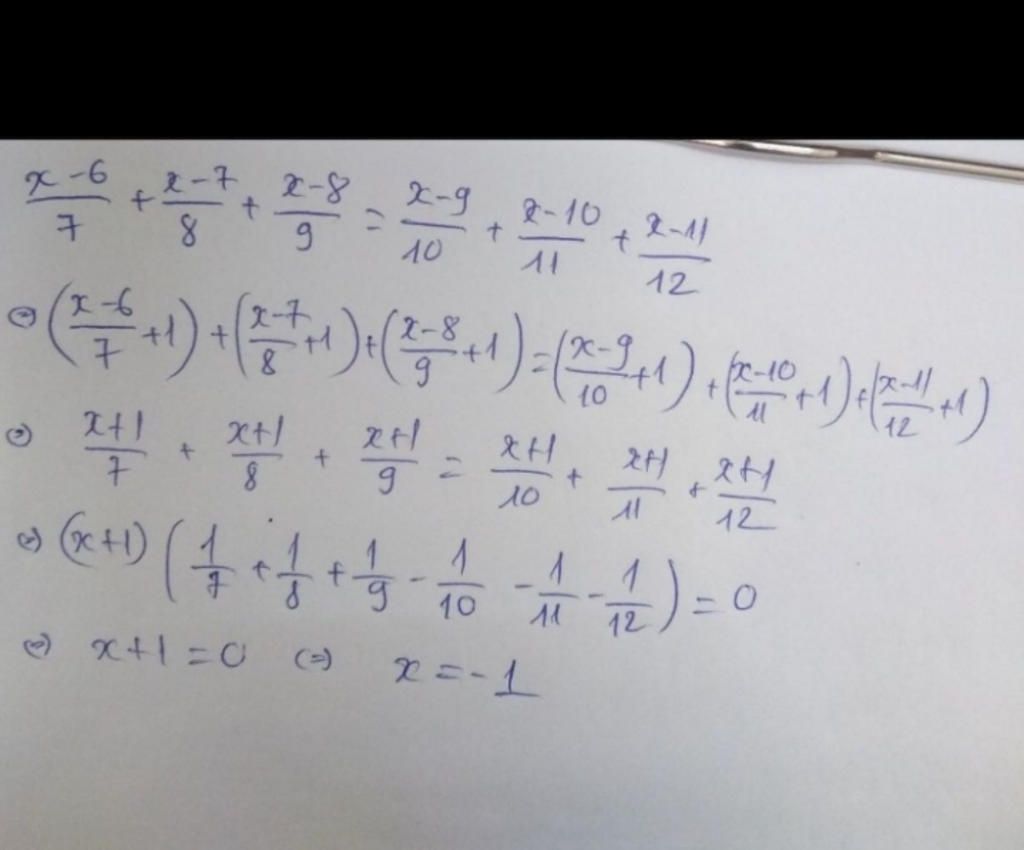 x-6/7 + x-7/8 + x-8/9 = x-9/10 + x-10/11 + x-11/12
⇔ (x-6/7 +1) + (x-7/8 +1) + (x-8/9 +1) = (x-9/10 +1) + (x-10/11 +1) + (x-11/12 +1)
⇔ x+1/7 + x+1/8 + x+1/9 = x+1/10 + x+1/11 + x+1/12
⇔ (x+1) (1/7 + 1/8 + 1/9 - 1/10 - 1/11 - 1/12) = 0
⇔ x+1 = 0 ⇔ x = -1